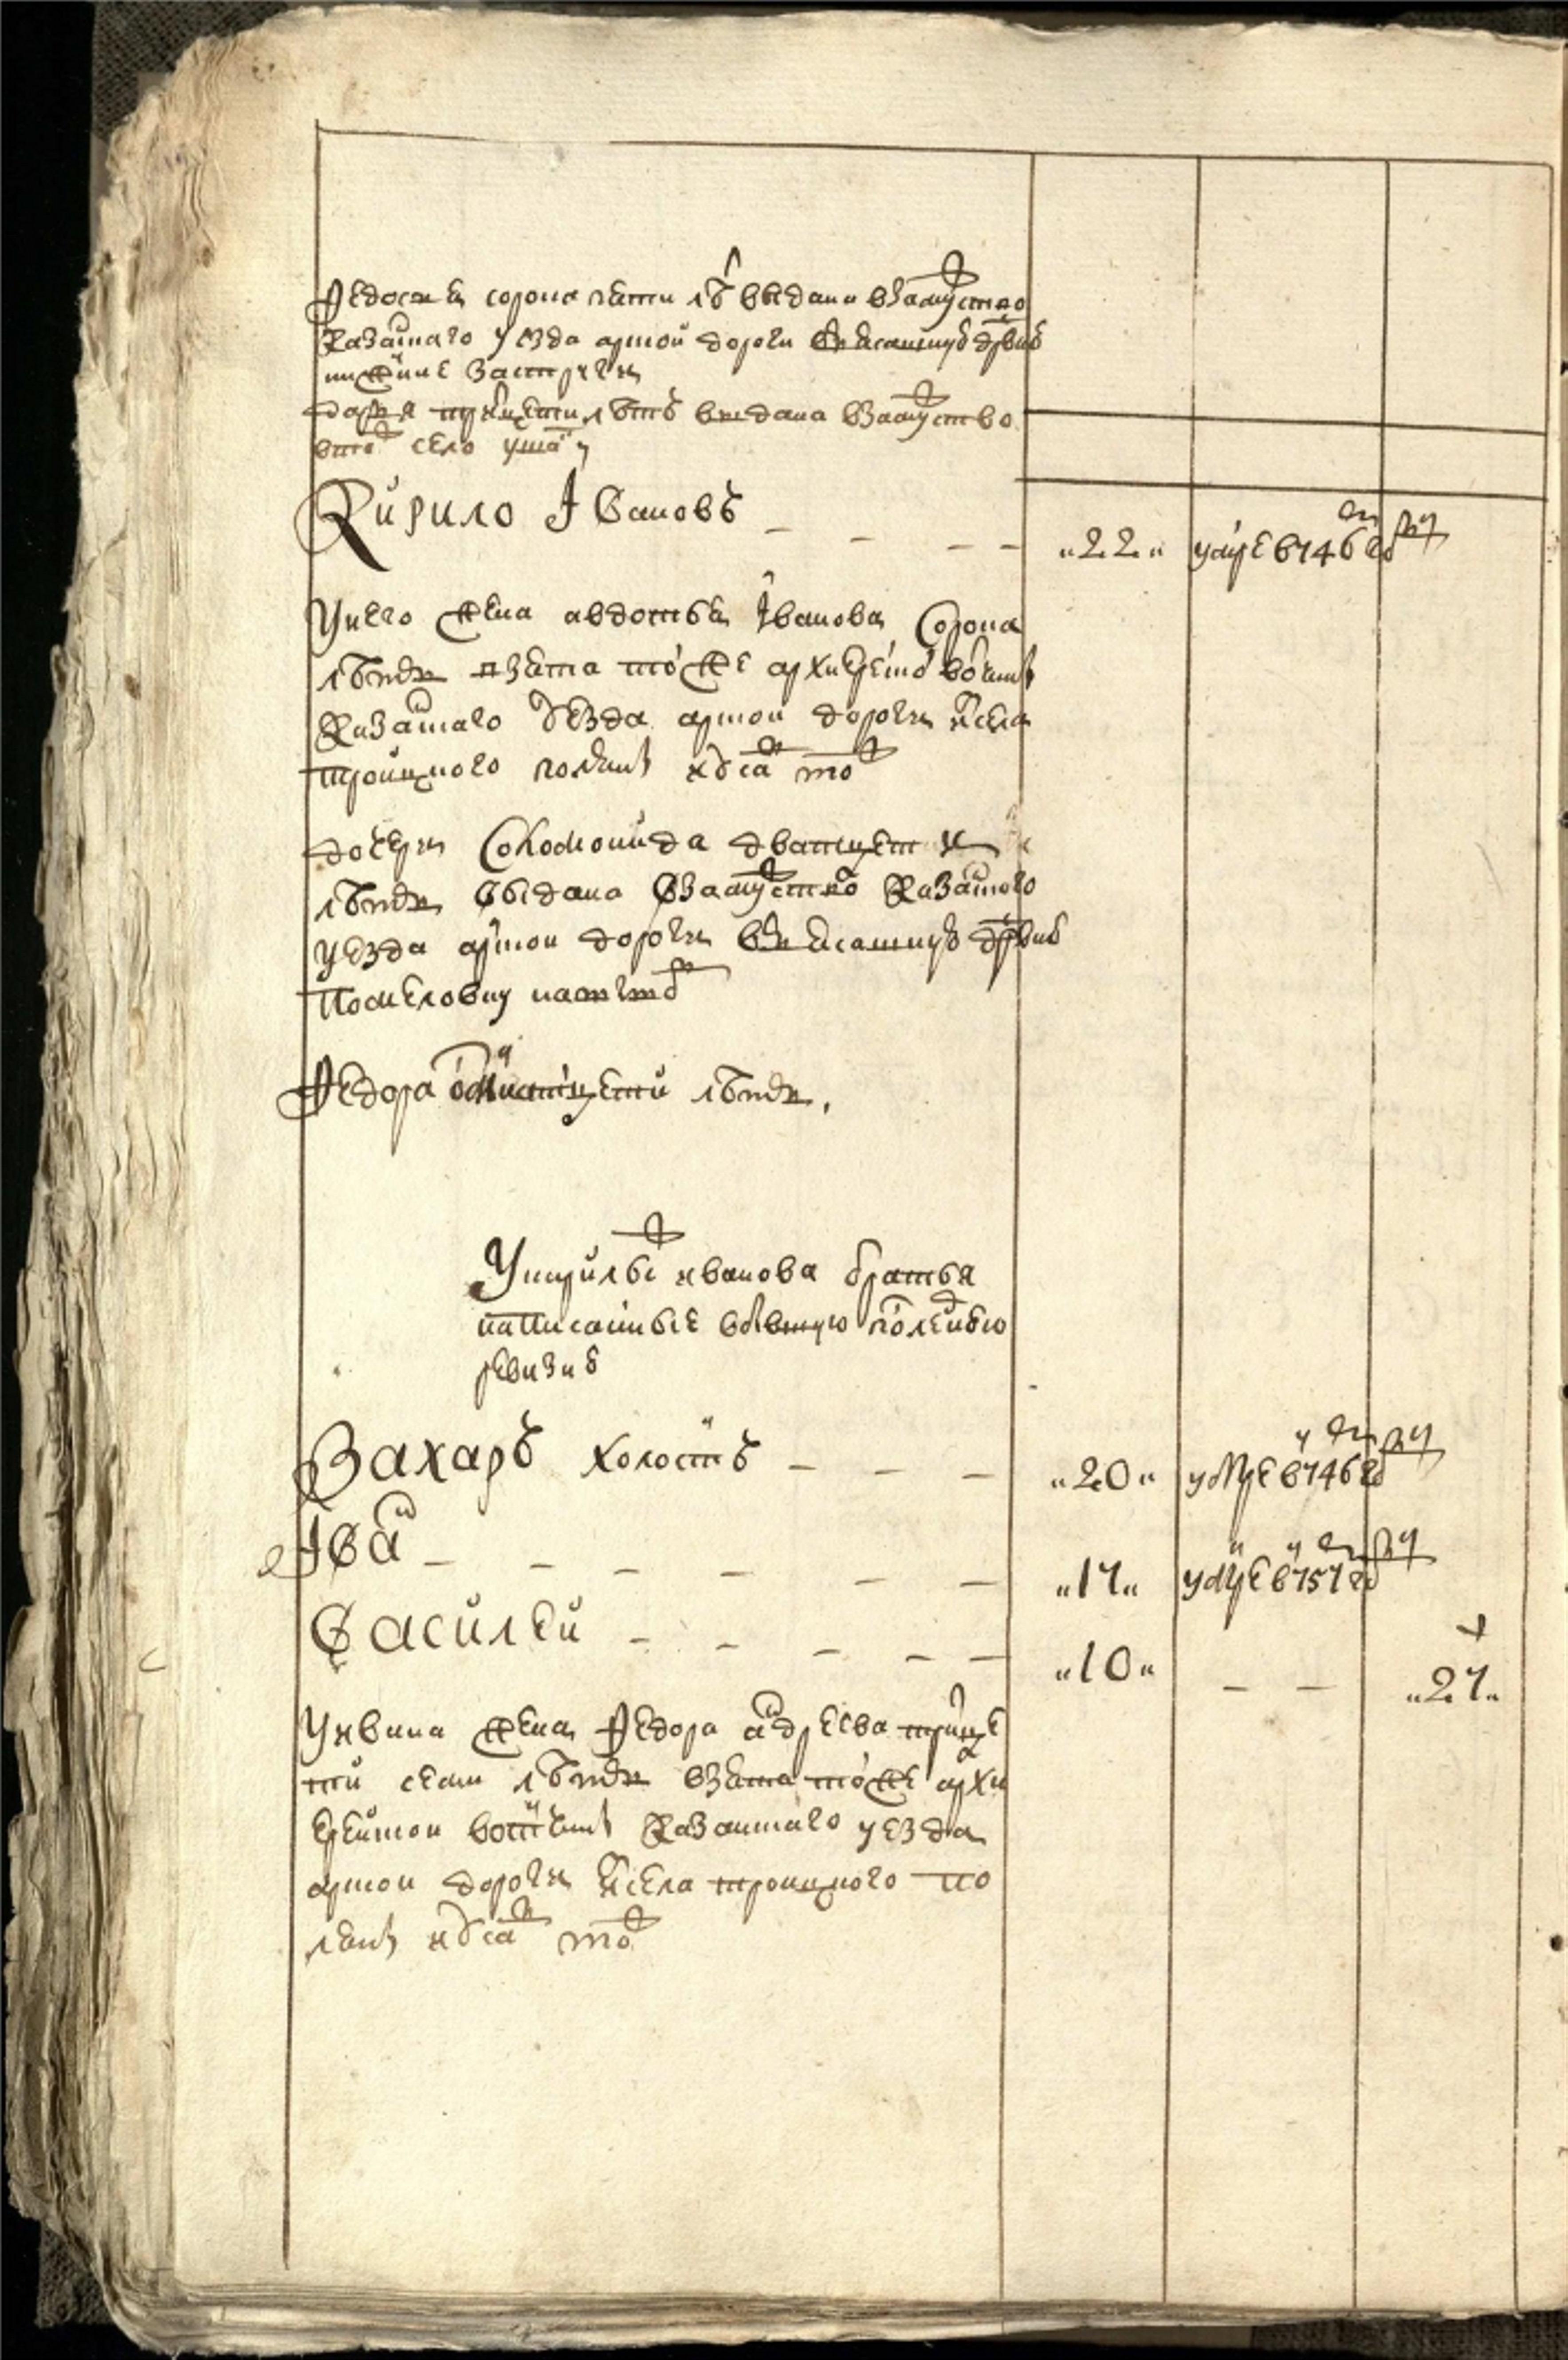 Федосья сорока пети лѣ выдана взамуство
Казанского уезда арской дороги в ясашную дрвню
нижние
Дарья трицети лѣтъ выдана взамуство
в то ж село
Кирило Ївановъ — — — — "22" умре в 1746 году
У него жена авдотья Їванова сорока
лѣтъ взята той же архиерейской вотчины
Казанского уѣзда арской дороги ис села
троицкого поляны
дочери Соломонида дватцети
лѣтъ выдана взамуство Казанского
уезда арской дороги в ясашную дрвню
Федора одинатцети лѣтъ,
У Кирилы ж иванова братья
написанныѣ в бывшую пред сею
ревизию
Захаръ холостъ — — — "20" умре в 1746 году
Їванъ — — — — — — "17" умре в 1757 году
Василей — — — — — "10" — — "27"
У ивана жена Федора андреева трицe
ти семи лѣтъ взята той же архи
ерейской вотчины Казанского уезда
арской дороги ис села троицкого по
ляны